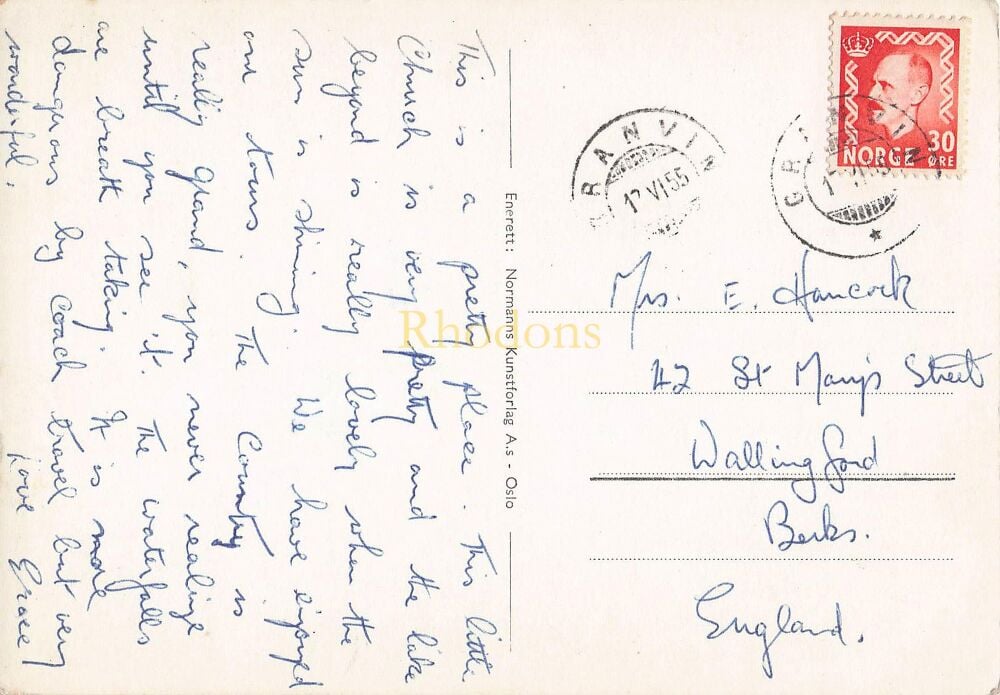 This is a pretty place. This little
Church is very pretty and the lake
beyond is really lovely when the
sun is shining. We have enjoyed
our tours. The Country is
really grand, you never realize
until you see it. The waterfalls
are breath taking. It is more
dangerous by coach travel but very
wonderful.
Love Grace
Enerett: Normanns Kunstforlag A.s - Oslo
Rhodons
GRANVIN
17 VI 55
GRANVIN
30
NORGE ØRE
Mrs. E. Hancock
42 St Mary's Street
Wallingford
Berks.
England.